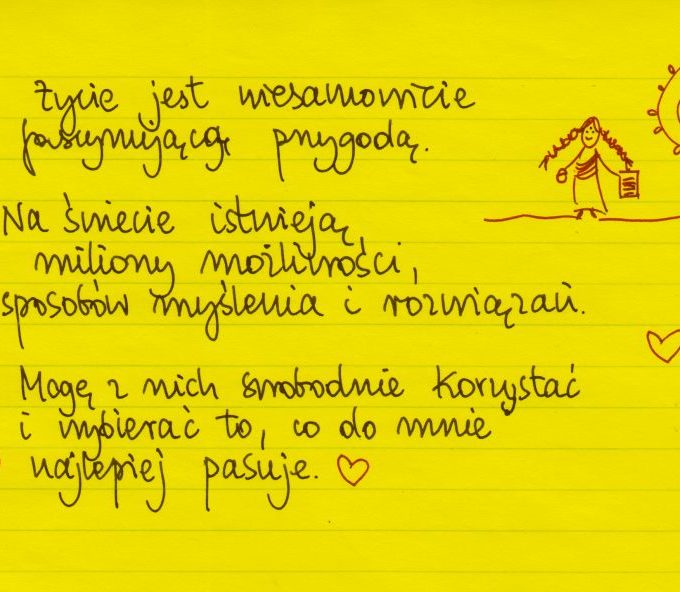 Życie jest niesamowicie
fascynującą przygodą.
Na świecie istnieją
miliony możliwości,
sposobów myślenia i rozwiązań.
Mogę z nich swobodnie korzystać
i wybierać to, co do mnie
najlepiej pasuje.